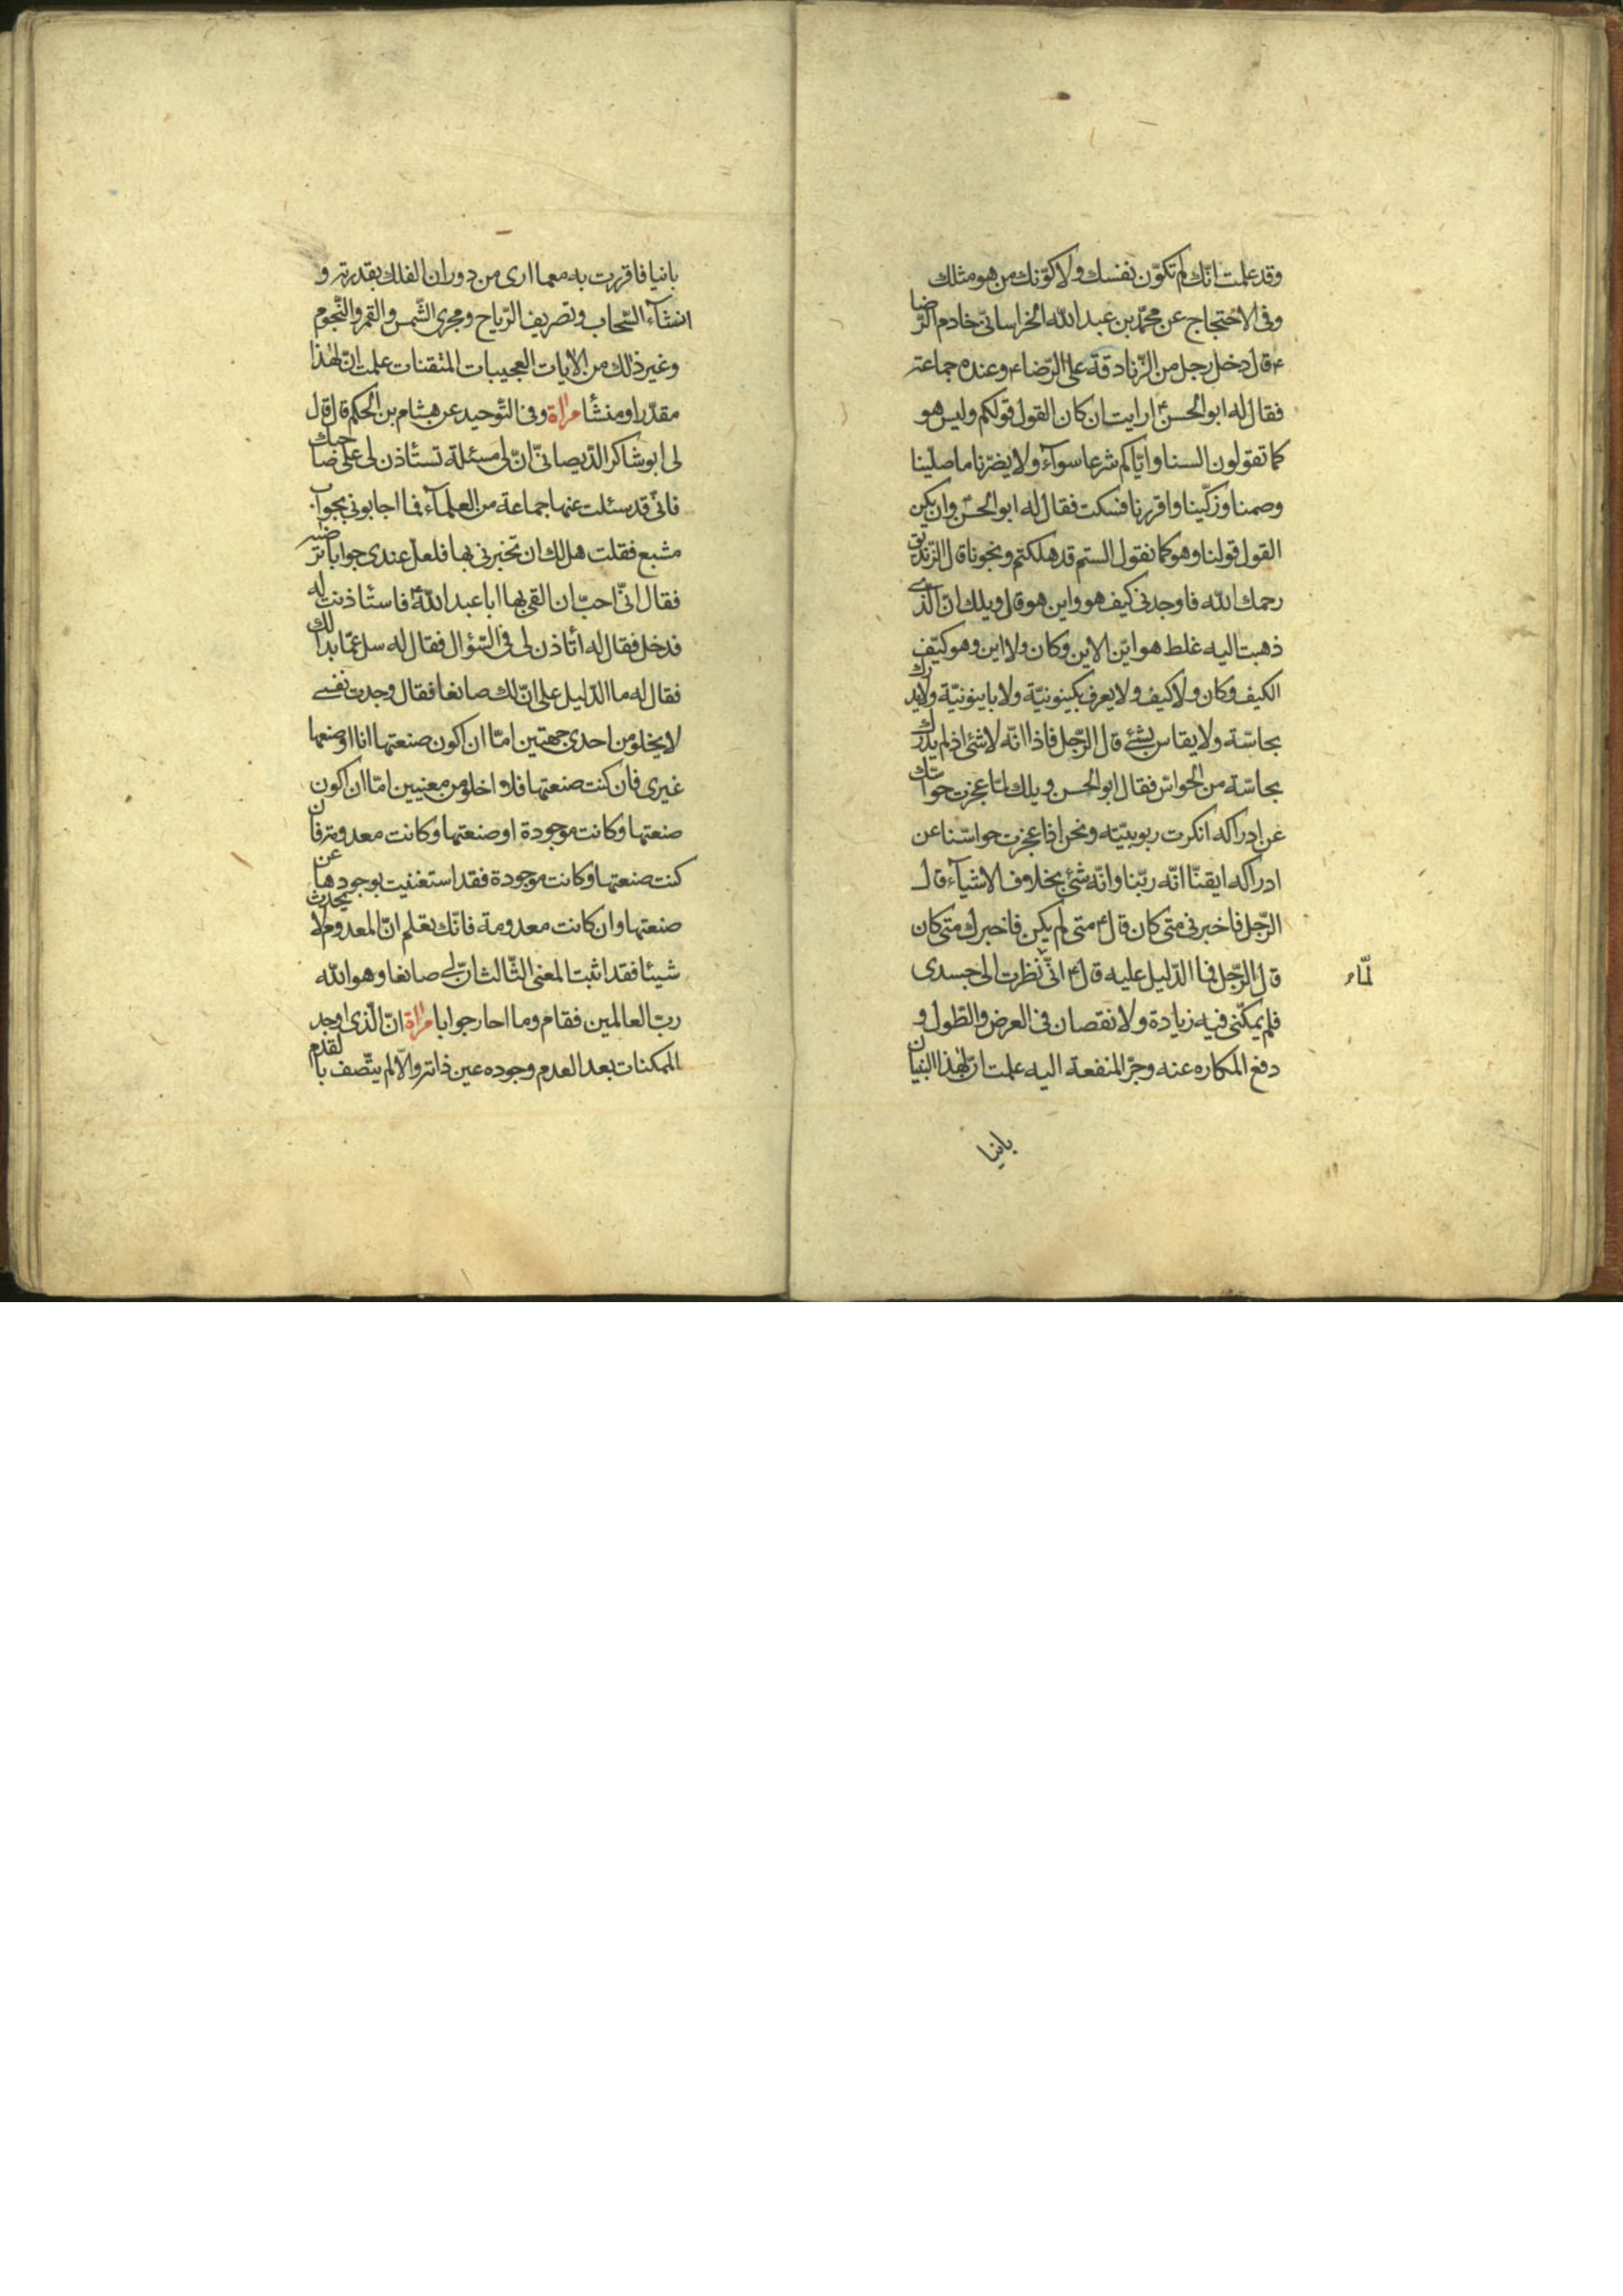 وقد علمت انّك لم تكوّن نفسك ولا كوّنك من هو مثلك
وفى الاحتجاج عن محمّد بن عبد الله الخراسانىّ خادم الرّضا
ع قال دخل رجل من الزّنادقة على الرّضا ع وعنده جماعة
فقال له ابو الحسن ع ارايت ان كان القول قولكم وليس هو
كما تقولون السنا وايّاكم شرعا سوآء ولا يضرّنا ما صلّينا
وصمنا وزكّينا واقررنا فسكت فقال له ابو الحسن وان يكن
القول قولنا وهو كما نقول الستم قد هلكتم ونجونا قال الزّنديق
رحمك الله فاوجدنى كيف هو واين هو قال ويلك انّ الّذى
ذهبت اليه غلط هو ايّن الاين وكان ولا اين وهو كيّف
الكيف وكان ولا كيف ولا يعرف بكينونيّة ولا باينونيّة ولا يدرك
بحاسّة ولا يقاس بشئ قال الرّجل فاذا انّه لا شئ اذ لم يدرك
بحاسّة من الحواسّ فقال ابو الحسن ويلك لمّا عجزت حواسّك
عن ادراكه انكرت ربوبيّته ونحن اذا عجزت حواسّنا عن
ادراكه ايقنّا انّه ربّنا وانّه شئ بخلاف الاشيآء قال
الرّجل فاخبرنى متى كان قال ع متى لم يكن فاخبرك متى كان
قال الرّجل فما الدّليل عليه قال ع انّى نظرت الى جسدى
لمّا
فلم يمكنّى فيه زيادة ولا نقصان فى العرض والطّول و
دفع المكاره عنه وجرّ المنفعة اليه علمت انّ لهذا البنيان
بانيا
بانيا فاقررت به مع ما ارى من دوران الفلك بقدرته و
انشآء السّحاب وتصريف الرّياح ومجرى الشّمس والقمر والنّجوم
وغير ذلك من الايات العجيبات المتقنات علمت انّ لهذا
مقدّرا ومنشأ مرآة وفى التّوحيد عن هشام بن الحكم قال قال
لى ابو شاكر الدّيصانىّ انّ لى مسئلة تستأذن لى على صاحبك
فانّى قد سئلت عنها جماعة من العلمآء فما اجابونى بجواب
مشبع فقلت هل لك ان تخبرنى بها فلعل عندى جوابا ترتضيه
فقال انّى احبّ ان القى بها ابا عبد الله ع فاستأذنت له
فدخل فقال له أتأذن لى فى السّؤال فقال له سل عمّا بدا لك
فقال له ما الدّليل على انّ لك صانعا فقال وجدت نفسى
لا يخلو من احدى جهتين امّا ان اكون صنعتها انا او صنعها
غيرى فان كنت صنعتها فلا اخلو من معنيين امّا ان اكون
صنعتها وكانت موجودة او صنعتها وكانت معدومة فان
كنت صنعتها وكانت موجودة فقد استغنيت بوجودها عن
صنعتها وان كانت معدومة فانّك تعلم انّ المعدوم لا يحدث
شيئا فقد اثبت المعنى الثّالث انّ لى صانعا وهو الله
ربّ العالمين فقام وما احار جوابا مرآة انّ الّذى اوجد
الممكنات بعد العدم وجوده عين ذاته والّا لم يتّصف بالقدم